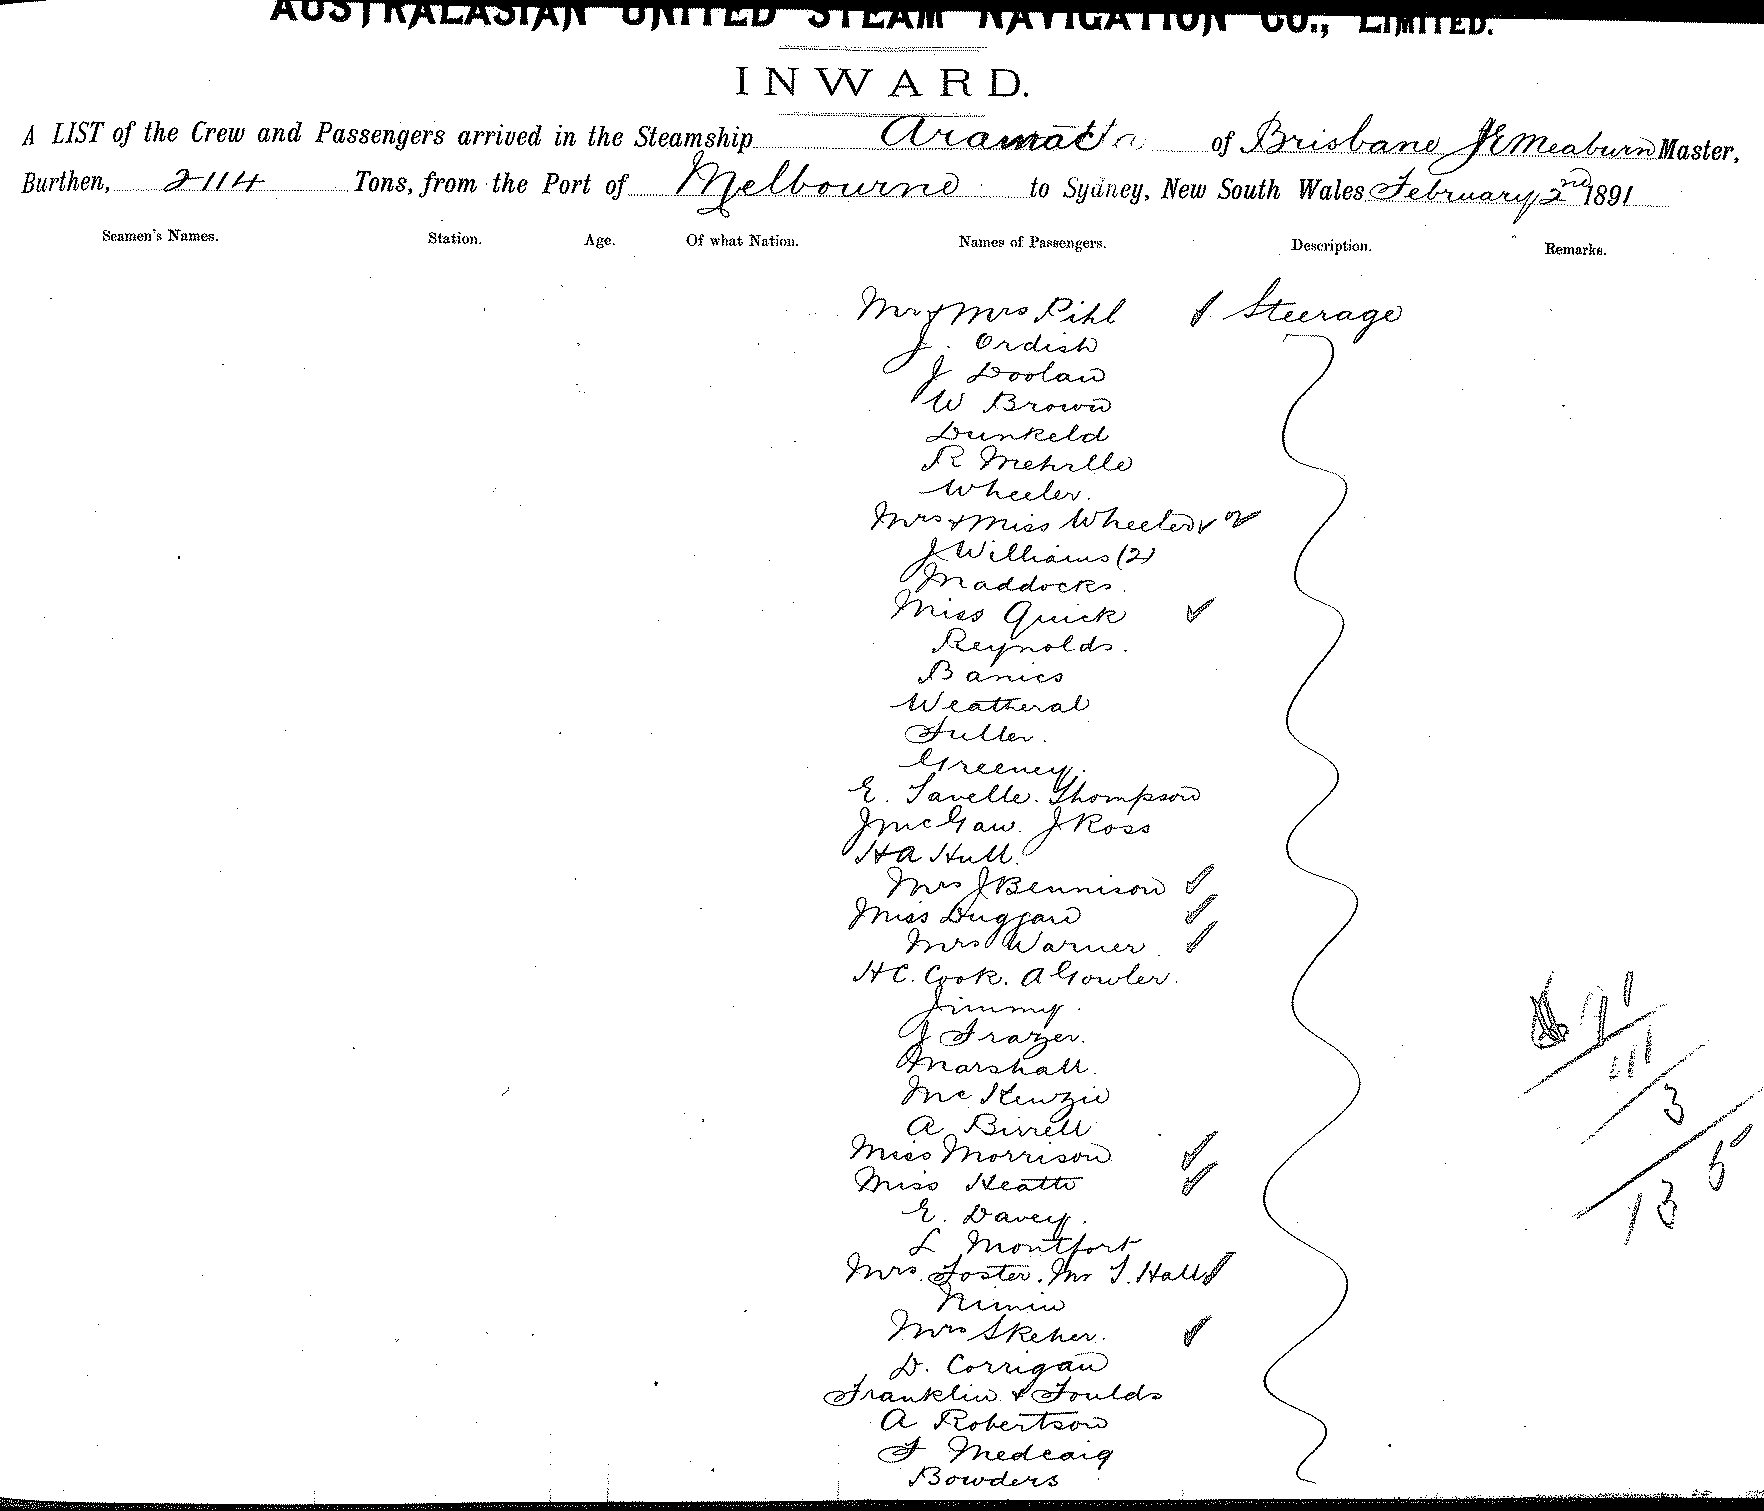 AUSTRALASIAN UNITED STEAM NAVIGATION CO., LIMITED.
INWARD.
A LIST of the Crew and Passengers arrived in the Steamship Aramac of Brisbane Meaburn Master,
Burthen, 2114 Tons, from the Port of Melbourne to Sydney, New South Wales February 2nd 1891
Seamen's Names. Station. Age. Of what Nation. Names of Passengers. Description. Remarks.
Mr & Mrs Pihl Steerage
J. Ordish
J Doolan
W Brown
Dunkeld
R
Wheeler.
Mrs & Miss Wheeler
J Williams (2)
Maddocks.
Miss Quick
Reynolds.
Banics
Weatheral
Fuller.
Greeney.
E. Savelle. Thompson
J McGaw. J Ross
H A Hull.
Mrs J Bennison
Miss Duggan
Mrs Warner
H C. Cook. A Gowler.
Jimmy.
J Frazer.
Marshall.
Mc Kenzie
A Birrell
Miss Morrison
Miss Heath
E. Davey.
L Montfort
Mrs. Foster. Mr T. Hall
Nimin
Mrs Skeher.
D. Corrigan
Franklin & Foulds
A Robertson
F Medcaig
Bowders
3
5
13